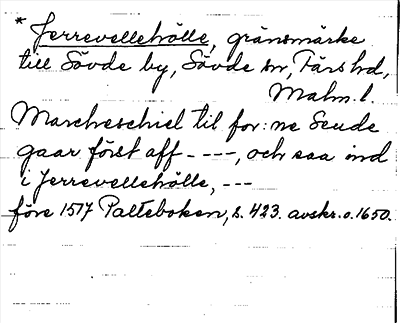 * Jerrevellehölle, gränsmärke
till Sövde by, Sövde sn, Färs hd,
Malm. l.
Marcheschiel til for: ne Seude
gaar först aff - - - -, och saa ind
i Jerrevellehölle, - - -
före 1517 Palteboken, s. 423. avskr. o. 1650.